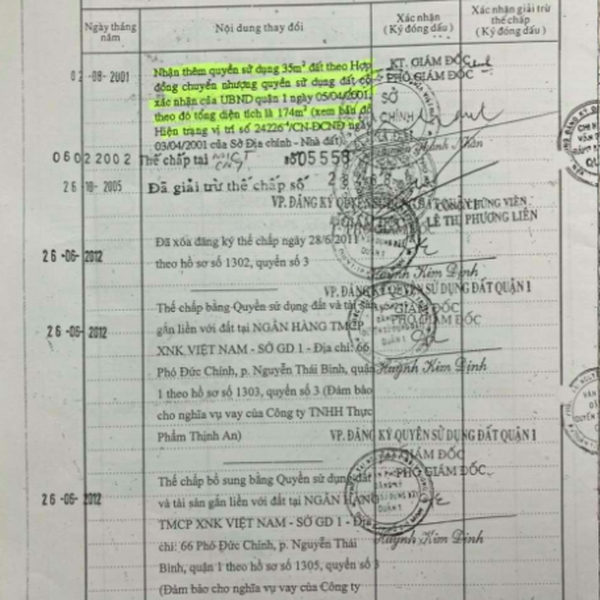 Ngày tháng năm
Nội dung thay đổi
Xác nhận (Ký đóng dấu)
Xác nhận giải trừ thế chấp (Ký đóng dấu)
02-08-2001
Nhận thêm quyền sử dụng 35m² đất theo Hợp
đồng chuyển nhượng quyền sử dụng đất có
xác nhận của UBND quận 1 ngày 05/04/2001,
theo đó tổng diện tích là 174m² (xem bản đồ
Hiện trạng vị trí số 24226 /CN-ĐCNĐ ngày
03/04/2001 của Sở Địa chính - Nhà đất).
KT. GIÁM ĐỐC
PHÓ GIÁM ĐỐC
SỞ
CHÍNH
06022002 Thế chấp tại
505558
26 10-2005 Đã giải trừ thế chấp số
VP. ĐĂNG KÝ QUYỀN SỬ DỤNG ĐẤT
CHỨNG VIÊN
GIÁM ĐỐC
LÊ THỊ PHƯƠNG LIÊN
PHÓ GIÁM ĐỐC
26-06-2012
Đã xóa đăng ký thế chấp ngày 28/6/2011
theo hồ sơ số 1302, quyển số 3
Huỳnh Kim Định
VP. ĐĂNG KÝ QUYỀN SỬ DỤNG ĐẤT QUẬN 1
GIÁM ĐỐC
PHÓ GIÁM ĐỐC
26-06-2012
Thế chấp bằng Quyền sử dụng đất và tài sản
gắn liền với đất tại NGÂN HÀNG TMCP
XNK VIỆT NAM - SỞ GD 1 - Địa chỉ: 66
Phó Đức Chính, p. Nguyễn Thái Bình, quận
1 theo hồ sơ số 1303, quyển số 3 (Đảm bảo
cho nghĩa vụ vay của Công ty TNHH Thực
Phẩm Thịnh An)
Huỳnh Kim Định
VP. ĐĂNG KÝ QUYỀN SỬ DỤNG ĐẤT QUẬN 1
GIÁM ĐỐC
PHÓ GIÁM ĐỐC
26-06-2012
Thế chấp bổ sung bằng Quyền sử dụng đất
và tài sản gắn liền với đất tại NGÂN HÀNG
TMCP XNK VIỆT NAM - SỞ GD 1 - Địa
chỉ: 66 Phó Đức Chính, p. Nguyễn Thái
Bình, quận 1 theo hồ sơ số 1305, quyển số 3
(Đảm bảo cho nghĩa vụ vay của Công ty
Huỳnh Kim Định